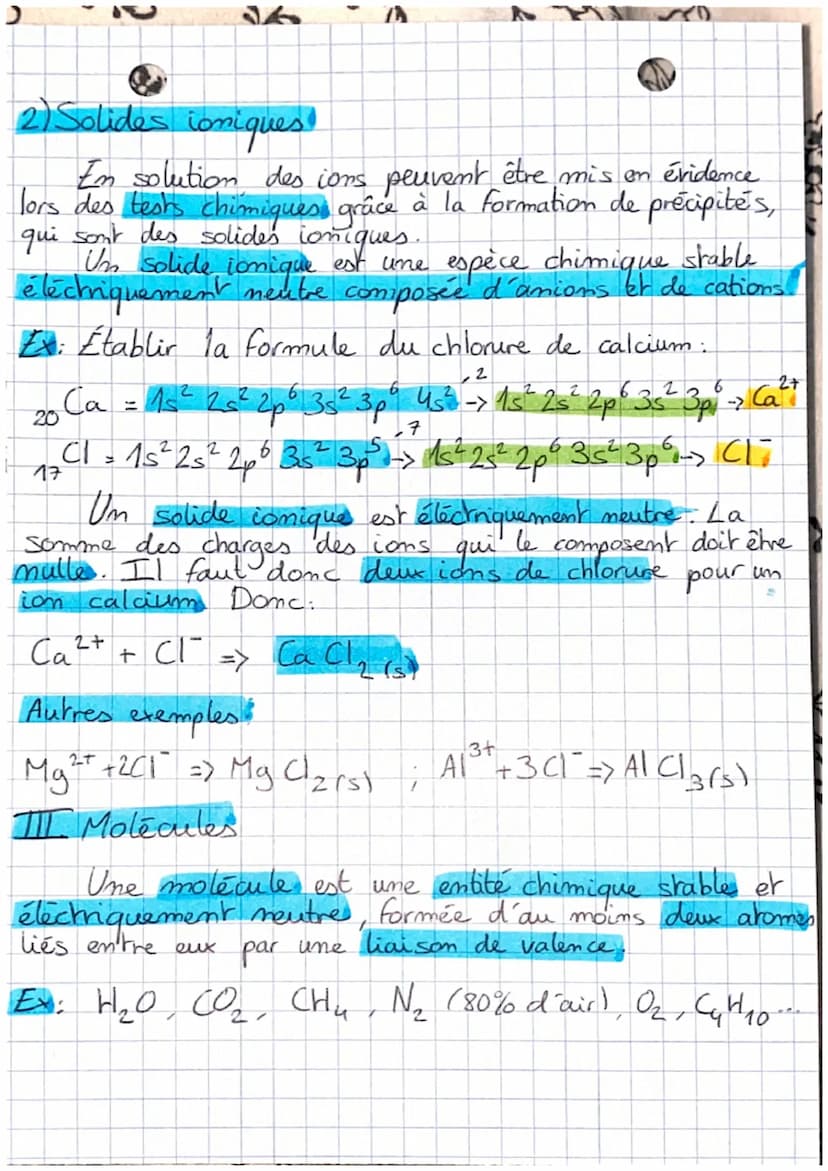 2) Solides ioniques
En solution des ions peuvent être mis en évidence
lors des tests chimiques grâce à la formation de précipités,
qui sont des solides ioniques.
Un solide ionique est une espèce chimique stable
éléctriquement neutre composée d'anions et de cations
Ex: Établir la formule du chlorure de calcium :
₂₀Ca = 1s² 2s² 2p⁶ 3s² 3p⁶ 4s² -> 1s² 2s² 2p⁶ 3s² 3p⁶ -> Ca²⁺
₁₇Cl = 1s² 2s² 2p⁶ 3s² 3p⁵ -> 1s² 2s² 2p⁶ 3s² 3p⁶ -> Cl⁻
Un solide ionique est éléctriquement neutre. La
somme des charges des ions qui le composent doit être
nulle. Il faut donc deux ions de chlorure pour un
ion calcium Donc:
Ca²⁺ + Cl⁻ => CaCl₂(s)
Autres exemples:
Mg²⁺ + 2Cl⁻ => MgCl₂(s) ; Al³⁺ + 3Cl⁻ => AlCl₃(s)
III Molécules
Une molécule est une entité chimique stable et
éléctriquement neutre, formée d'au moins deux atomes
liés entre eux par une liaison de valence.
Ex: H₂O, CO₂, CH₄, N₂ (80% d'air), O₂, C₄H₁₀...